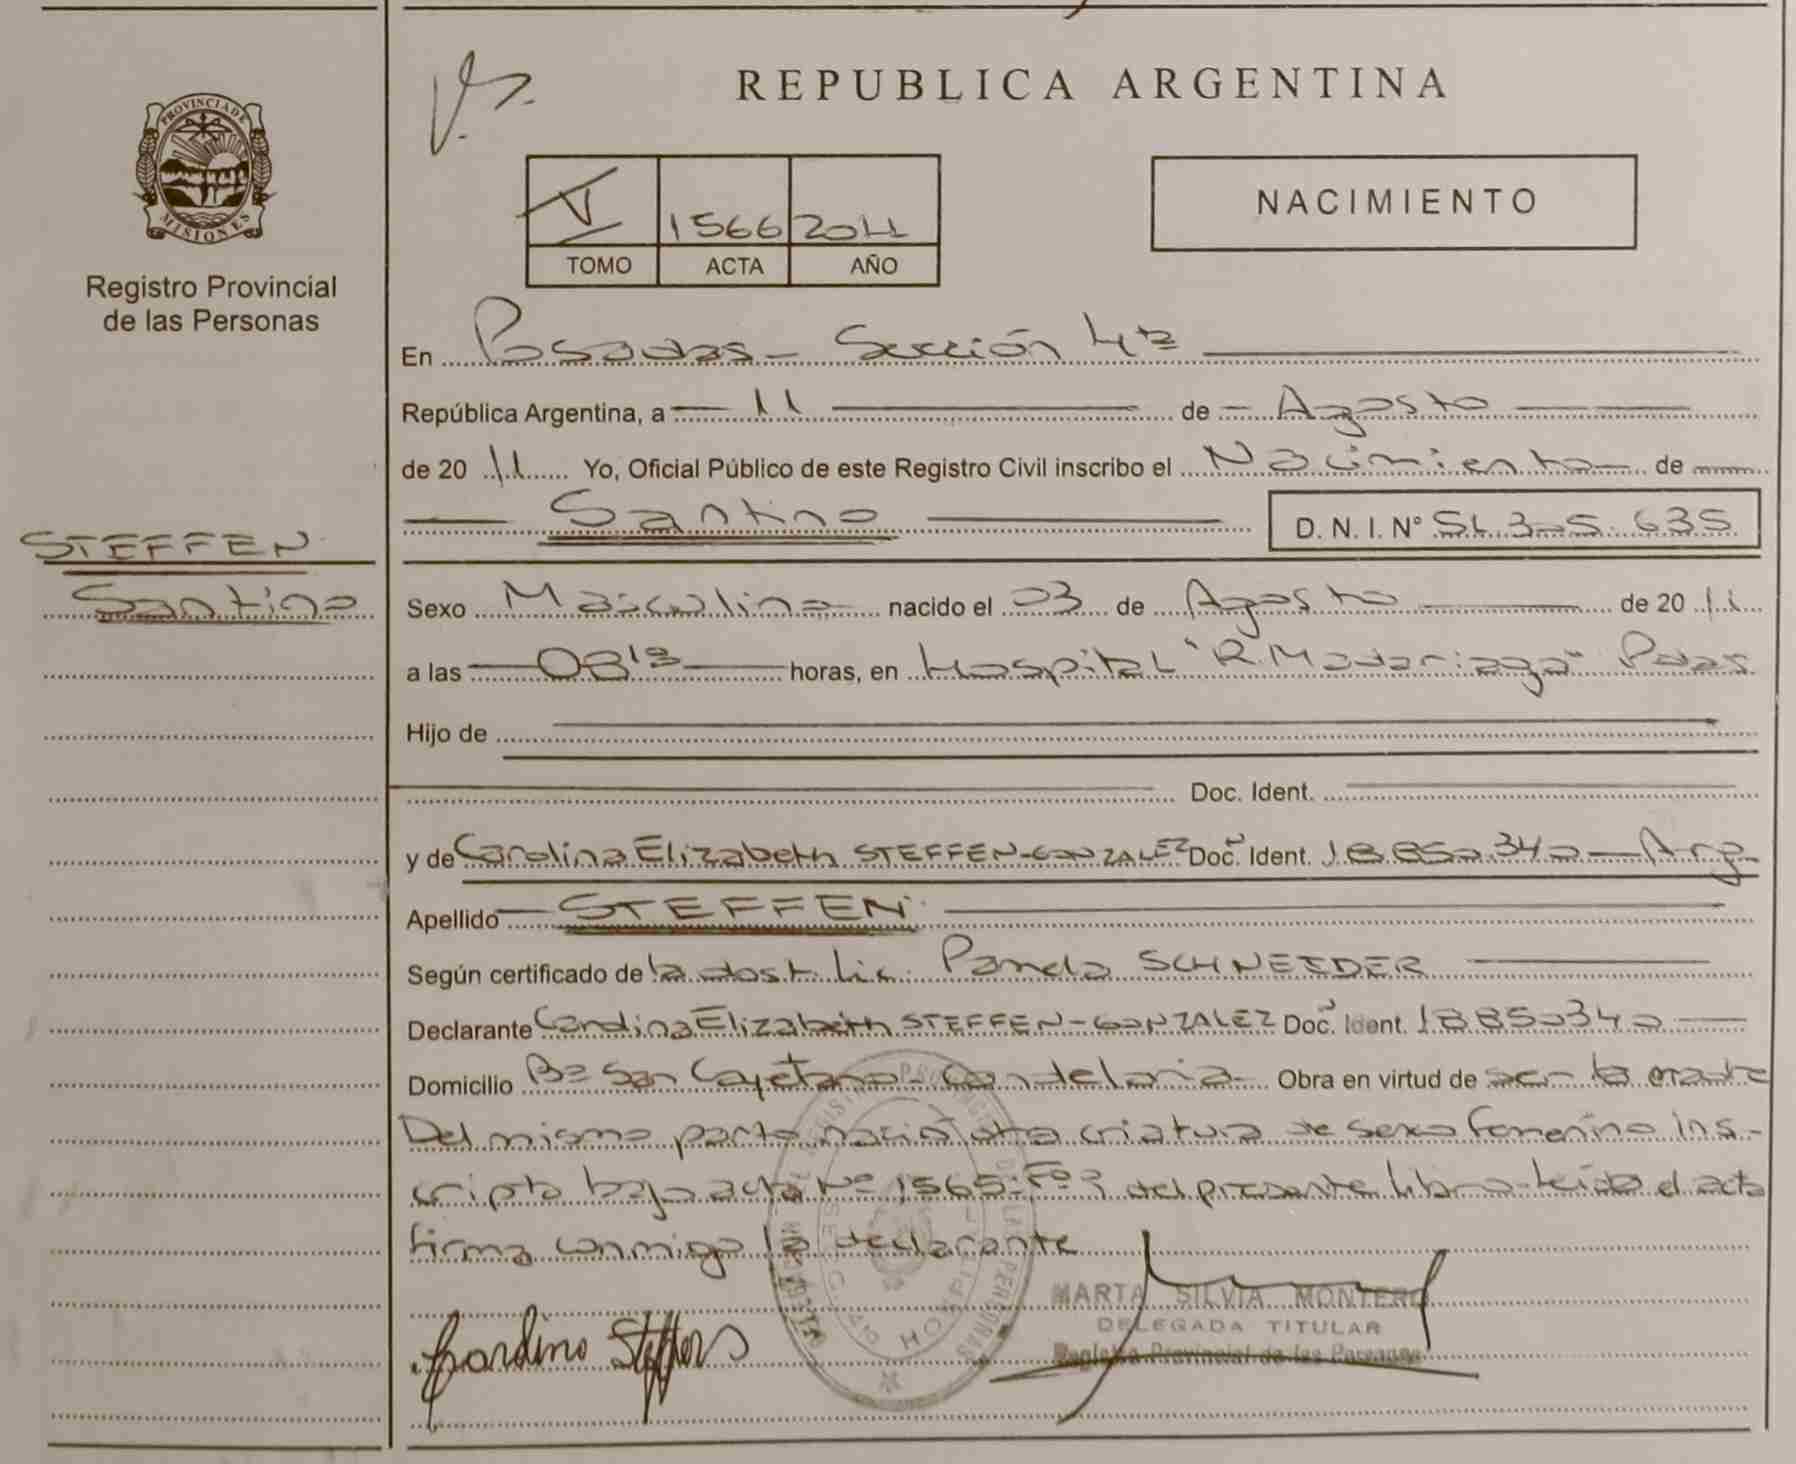 REPUBLICA ARGENTINA
PROVINCIA DE
MISIONES
Registro Provincial
de las Personas
V 1566 2011
TOMO ACTA AÑO
NACIMIENTO
En Posadas - Sección 4ta
República Argentina, a 11 de Agosto
de 20 11 Yo, Oficial Público de este Registro Civil inscribo el Nacimiento de
Santino D. N. I. N° 51.305.635
STEFFEN
Santino
Sexo Masculino nacido el 03 de Agosto de 20 11
a las 08 horas, en Hospital "R. Madariaga" Pdas.
Hijo de
Doc. Ident.
y de Carolina Elizabeth STEFFEN-GONZALEZ Doc. Ident. 18.850.340 - Arg.
Apellido STEFFEN
Según certificado de la obst. Lic. SCHNEIDER
Declarante Carolina Elizabeth STEFFEN-GONZALEZ Doc. Ident. 18.850.340
Domicilio Bº San Cayetano - Candelaria - Obra en virtud de ser la madre
Del mismo parto nació otra criatura de sexo femenino ins-
cripta bajo acta Nº 1565 Fº del presente libro - leída el acta
firma conmigo la declarante
MARTA SILVIA MONTERO
DELEGADA TITULAR
Registro Provincial de las Personas